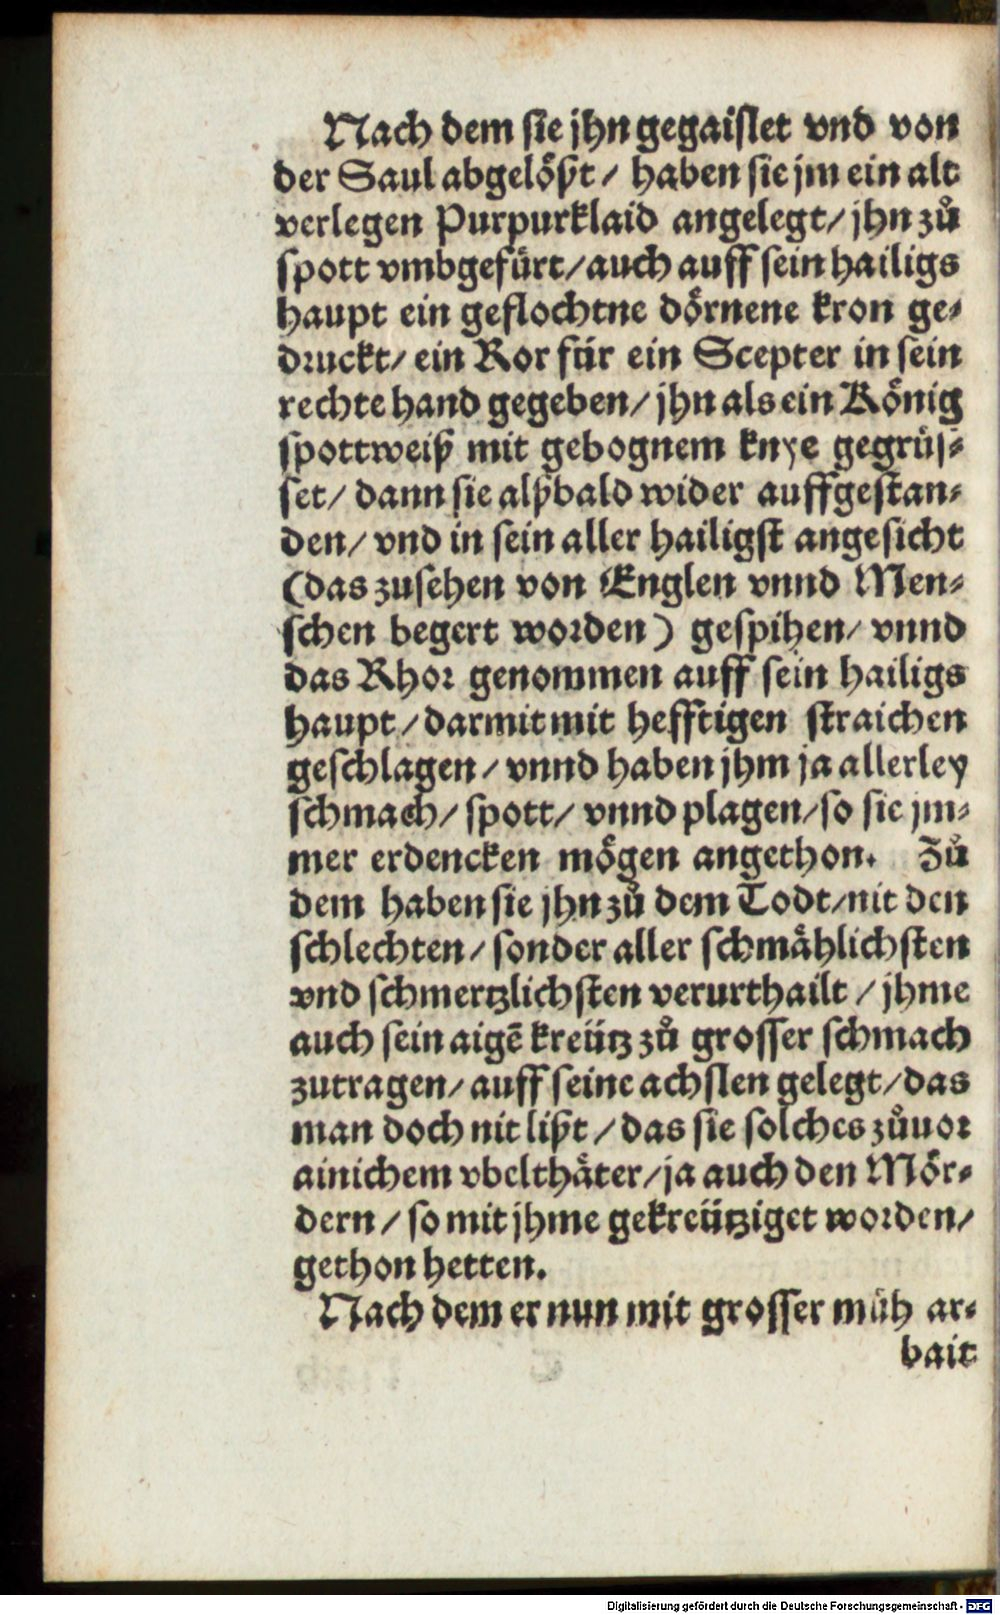 Nach dem sie jhn gegaislet vnd von
der Saul abgelößt / haben sie jm ein alt
verlegen Purpurklaid angelegt / jhn zů
spott vmbgefürt / auch auff sein hailigs
haupt ein geflochtne dörnene kron ge-
druckt / ein Ror für ein Scepter in sein
rechte hand gegeben / jhn als ein König
spottweiß mit gebognem knye gegrüs-
set / dann sie alßbald wider auffgestan-
den / vnd in sein aller hailigst angesicht
(das zusehen von Englen vnnd Men-
schen begert worden) gespihen / vnnd
das Rhor genommen auff sein hailigs
haupt / darmit mit hefftigen straichen
geschlagen / vnnd haben jhm ja allerley
schmach / spott / vnnd plagen / so sie jm-
mer erdencken mögen angethon. Zů
dem haben sie jhn zů dem Todt / nit den
schlechten / sonder aller schmählichsten
vnd schmertzlichsten verurthailt / jhme
auch sein aigē kreütz zů grosser schmach
zutragen / auff seine achslen gelegt / das
man doch nit lißt / das sie solches zůuor
ainichem vbelthäter / ja auch den Mör-
dern / so mit jhme gekreütziget worden /
gethon hetten.
Nach dem er nun mit grosser müh ar-
bait
Digitalisierung gefördert durch die Deutsche Forschungsgemeinschaft - DFG